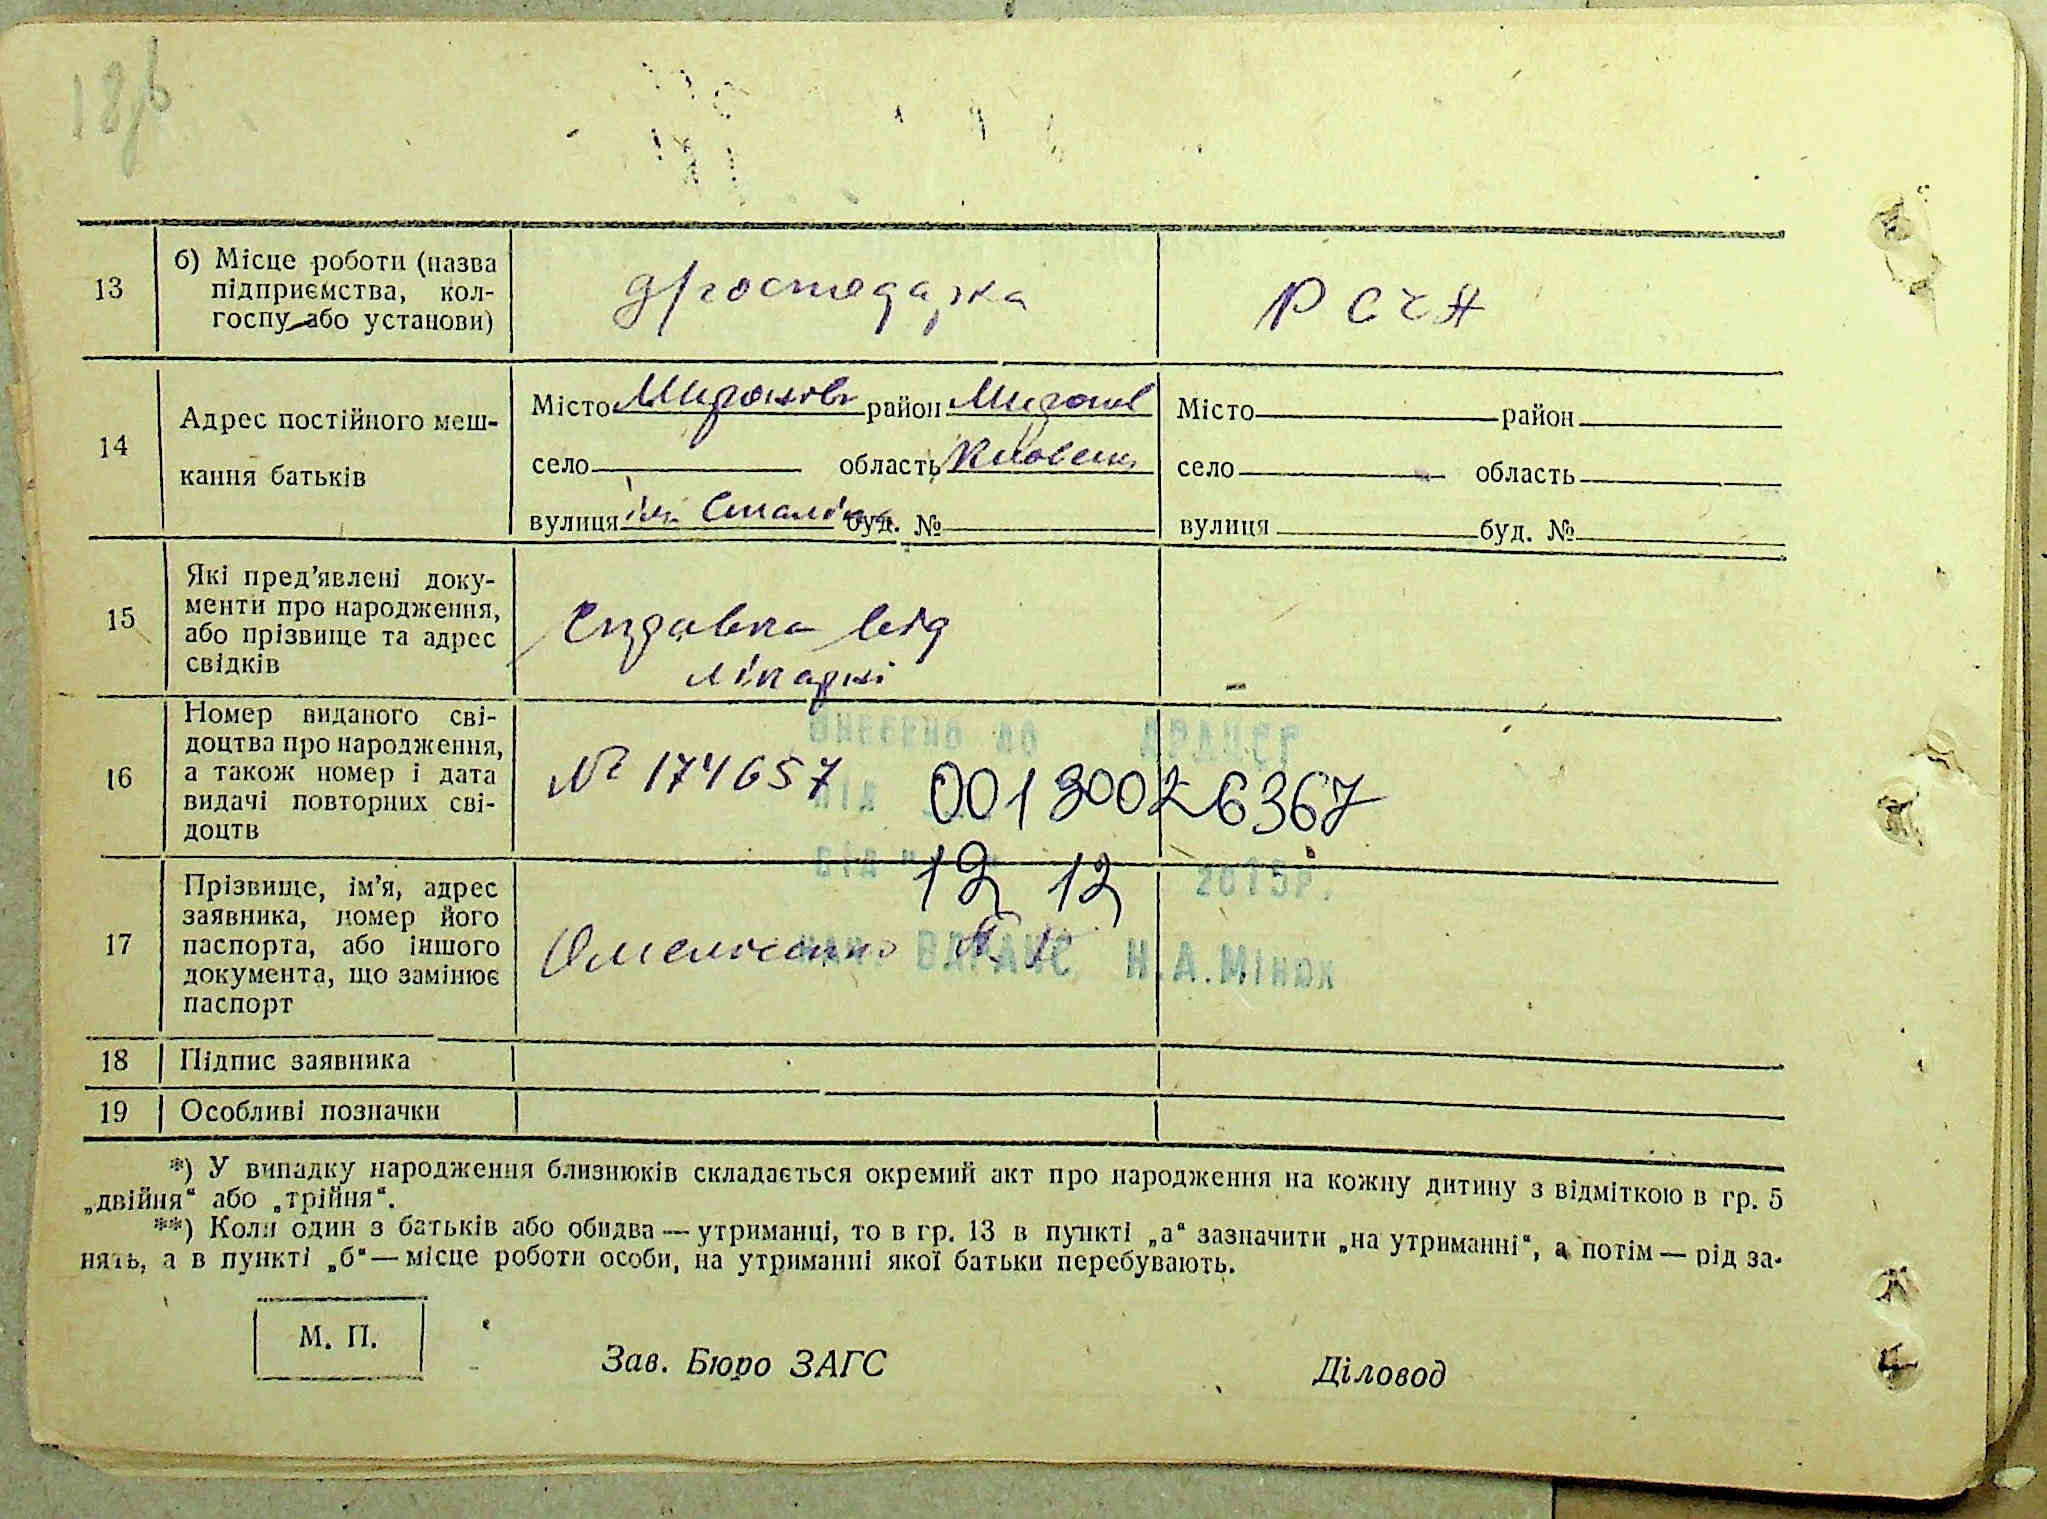 13
б) Місце роботи (назва
підприємства, кол-
госпу або установи)
Р С Ч А
14
Адрес постійного меш-
кання батьків
Місто Миронів район Миронів
село область Київська
вулиця ім Сталіна буд. №
Місто район
село область
вулиця буд. №
15
Які пред'явлені доку-
менти про народження,
або прізвище та адрес
свідків
Справка від
лікарні
16
Номер виданого сві-
доцтва про народження,
а також номер і дата
видачі повторних сві-
доцтв
№ 174657
Внесено до ДРАЦСГ
від 00130026367
від " 12 12 2015р.
17
Прізвище, ім'я, адрес
заявника, номер його
паспорта, або іншого
документа, що замінює
паспорт
Омельченко
Нач. ВДРАЦС Н.А.Мінюк
18
Підпис заявника
19
Особливі позначки
*) У випадку народження близнюків складається окремий акт про народження на кожну дитину з відміткою в гр. 5
„двійня“ або „трійня“.
**) Коли один з батьків або обидва — утриманці, то в гр. 13 в пункті „а“ зазначити „на утриманні“, а потім — рід за-
нять, а в пункті „б“ — місце роботи особи, на утриманні якої батьки перебувають.
М. П.
Зав. Бюро ЗАГС
Діловод